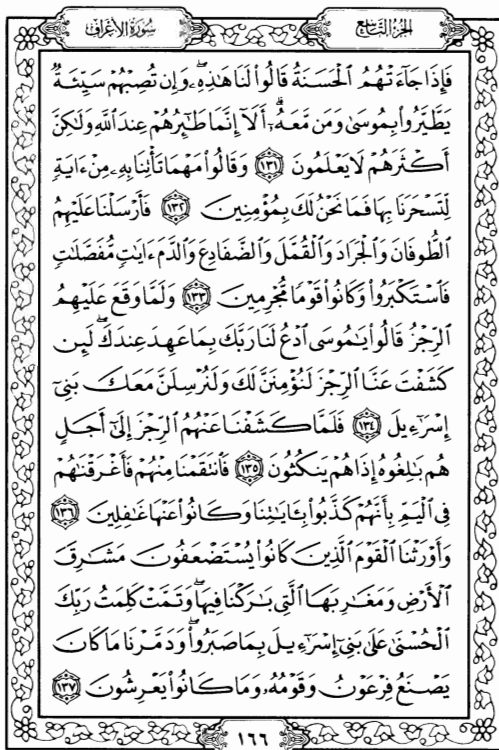 سُورَةُ الأَعْرَافِ
الجُزْءُ التَّاسِعُ
فَإِذَا جَآءَتْهُمُ ٱلْحَسَنَةُ قَالُوا۟ لَنَا هَـٰذِهِۦ ۖ وَإِن تُصِبْهُمْ سَيِّئَةٌ
يَطَّيَّرُوا۟ بِمُوسَىٰ وَمَن مَّعَهُۥٓ ۗ أَلَآ إِنَّمَا طَـٰٓئِرُهُمْ عِندَ ٱللَّهِ وَلَـٰكِنَّ
أَكْثَرَهُمْ لَا يَعْلَمُونَ ١٣١ وَقَالُوا۟ مَهْمَا تَأْتِنَا بِهِۦ مِنْ ءَايَةٍ
لِّتَسْحَرَنَا بِهَا فَمَا نَحْنُ لَكَ بِمُؤْمِنِينَ ١٣٢ فَأَرْسَلْنَا عَلَيْهِمُ
ٱلطُّوفَانَ وَٱلْجَرَادَ وَٱلْقُمَّلَ وَٱلضَّفَادِعَ وَٱلدَّمَ ءَايَـٰتٍ مُّفَصَّلَـٰتٍ
فَٱسْتَكْبَرُوا۟ وَكَانُوا۟ قَوْمًا مُّجْرِمِينَ ١٣٣ وَلَمَّا وَقَعَ عَلَيْهِمُ
ٱلرِّجْزُ قَالُوا۟ يَـٰمُوسَى ٱدْعُ لَنَا رَبَّكَ بِمَا عَهِدَ عِندَكَ ۖ لَئِن
كَشَفْتَ عَنَّا ٱلرِّجْزَ لَنُؤْمِنَنَّ لَكَ وَلَنُرْسِلَنَّ مَعَكَ بَنِىٓ
إِسْرَٰٓءِيلَ ١٣٤ فَلَمَّا كَشَفْنَا عَنْهُمُ ٱلرِّجْزَ إِلَىٰٓ أَجَلٍ
هُم بَـٰلِغُوهُ إِذَا هُمْ يَنكُثُونَ ١٣٥ فَٱنتَقَمْنَا مِنْهُمْ فَأَغْرَقْنَـٰهُمْ
فِى ٱلْيَمِّ بِأَنَّهُمْ كَذَّبُوا۟ بِـَٔايَـٰتِنَا وَكَانُوا۟ عَنْهَا غَـٰفِلِينَ ١٣٦
وَأَوْرَثْنَا ٱلْقَوْمَ ٱلَّذِينَ كَانُوا۟ يُسْتَضْعَفُونَ مَشَـٰرِقَ
ٱلْأَرْضِ وَمَغَـٰرِبَهَا ٱلَّتِى بَـٰرَكْنَا فِيهَا ۖ وَتَمَّتْ كَلِمَتُ رَبِّكَ
ٱلْحُسْنَىٰ عَلَىٰ بَنِىٓ إِسْرَٰٓءِيلَ بِمَا صَبَرُوا۟ ۖ وَدَمَّرْنَا مَا كَانَ
يَصْنَعُ فِرْعَوْنُ وَقَوْمُهُۥ وَمَا كَانُوا۟ يَعْرِشُونَ ١٣٧
١٦٦